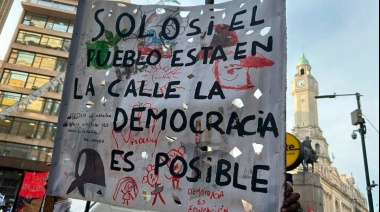 SOLO SI EL
PUEBLO ESTA EN
LA CALLE LA
DEMOCRACIA
ES POSIBLE
DEMOCRACIA
ES
EDUCACIÓN